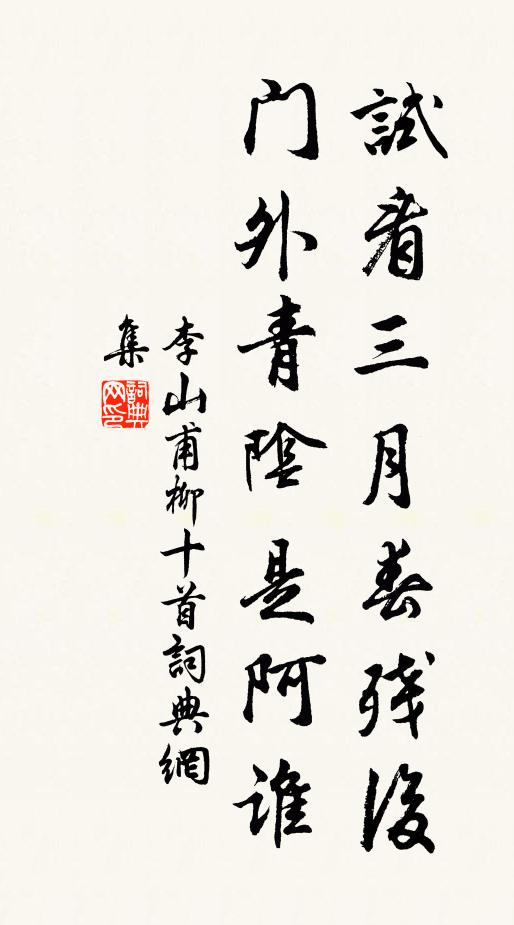 試看三月春殘後
門外青陰是阿誰
李山甫柳十首詞典網
集
詞典
网印